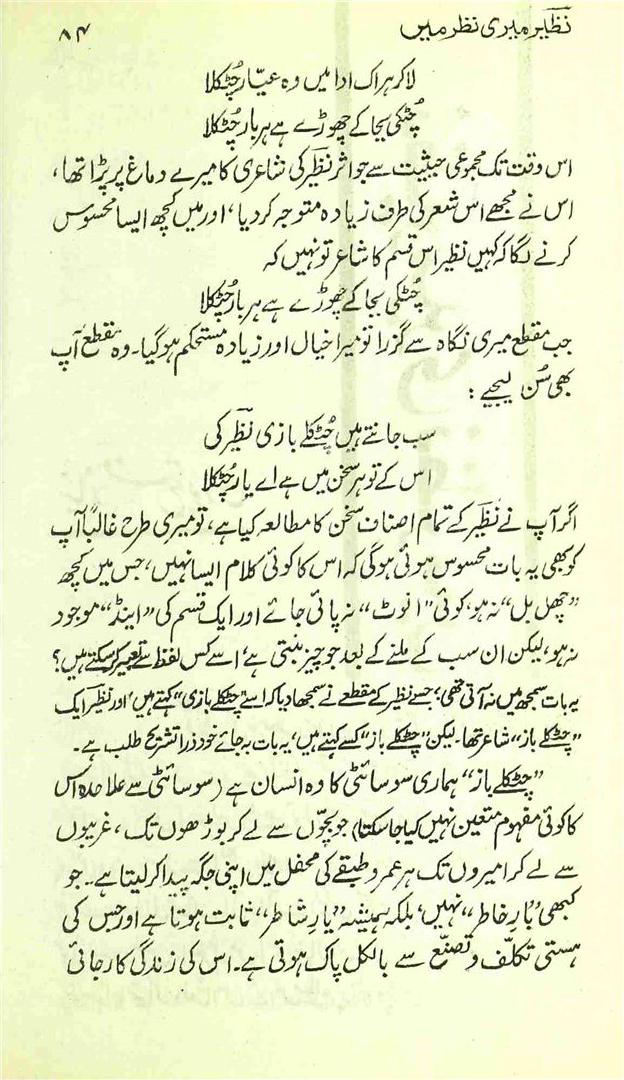 نظیر میری نظر میں ۸۴
لا کر ہراک ادا میں وہ عیّار چُٹکلا
چُٹکی بجا کے چھوڑے ہے ہر بار چُٹکلا
اس وقت تک مجموعی حیثیت سے جو اثر نظیر کی شاعری کا میرے دماغ پر پڑا تھا،
اس نے مجھے اس شعر کی طرف زیادہ متوجہ کر دیا، اور میں کچھ ایسا محسوس
کرنے لگا کہ کہیں نظیر اس قسم کا شاعر تو نہیں کہ
چُٹکی بجا کے چھوڑے ہے ہر بار چُٹکلا
جب مقطع میری نگاہ سے گزرا تو میرا خیال اور زیادہ مستحکم ہو گیا۔ وہ مقطع آپ
بھی سُن لیجیے :
سب جانتے ہیں چُٹکلے بازی نظیر کی
اس کے تو ہر سخن میں ہے اے یار چُٹکلا
اگر آپ نے نظیر کے تمام اصناف سخن کا مطالعہ کیا ہے، تو میری طرح غالباً آپ
کو بھی یہ بات محسوس ہوئی ہوگی کہ اس کا کوئی کلام ایسا نہیں، جس میں کچھ
”چھل بل“ نہ ہو، کوئی ”انوٹ“ نہ پائی جائے اور ایک قسم کی ”اینڈ“ موجود
نہ ہو، لیکن ان سب کے ملنے کے بعد جو چیز بنتی ہے، اسے کس لفظ سے تعبیر کر سکتے ہیں؟
یہ بات سمجھ میں نہ آتی تھی؛ جسے نظیر کے مقطعے نے سمجھا دیا کہ اسے ”چٹکلے بازی“ کہتے ہیں، اور نظیر ایک
”چٹکلے باز“ شاعر تھا۔ لیکن ”چٹکلے باز“ کسے کہتے ہیں، یہ بات بہ جائے خود ذرا تشریح طلب ہے۔
”چٹکلے باز“ ہماری سوسائٹی کا وہ انسان ہے (سوسائٹی سے علاحدہ اس
کا کوئی مفہوم متعین نہیں کیا جا سکتا) جو بچّوں سے لے کر بوڑھوں تک، غریبوں
سے لے کر امیروں تک ہر عمر و طبقے کی محفل میں اپنی جگہ پیدا کر لیتا ہے۔ جو
کبھی ”بارِ خاطر“ نہیں، بلکہ ہمیشہ ”یارِ شاطر“ ثابت ہوتا ہے اور جس کی
ہستی تکلّف و تصنّع سے بالکل پاک ہوتی ہے۔ اس کی زندگی کا رجائی